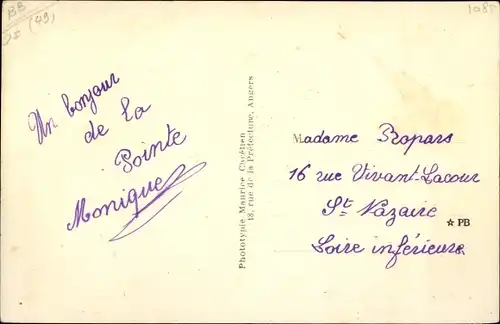 BB
(49)
1085
Un bonjour
de la
Pointe
Monique
Phototypie Maurice Chrétien
18, rue de la Préfecture, Angers
Madame Ropars
16 rue Vivant-Lacour
St Nazaire
☆ PB
Loire inférieure